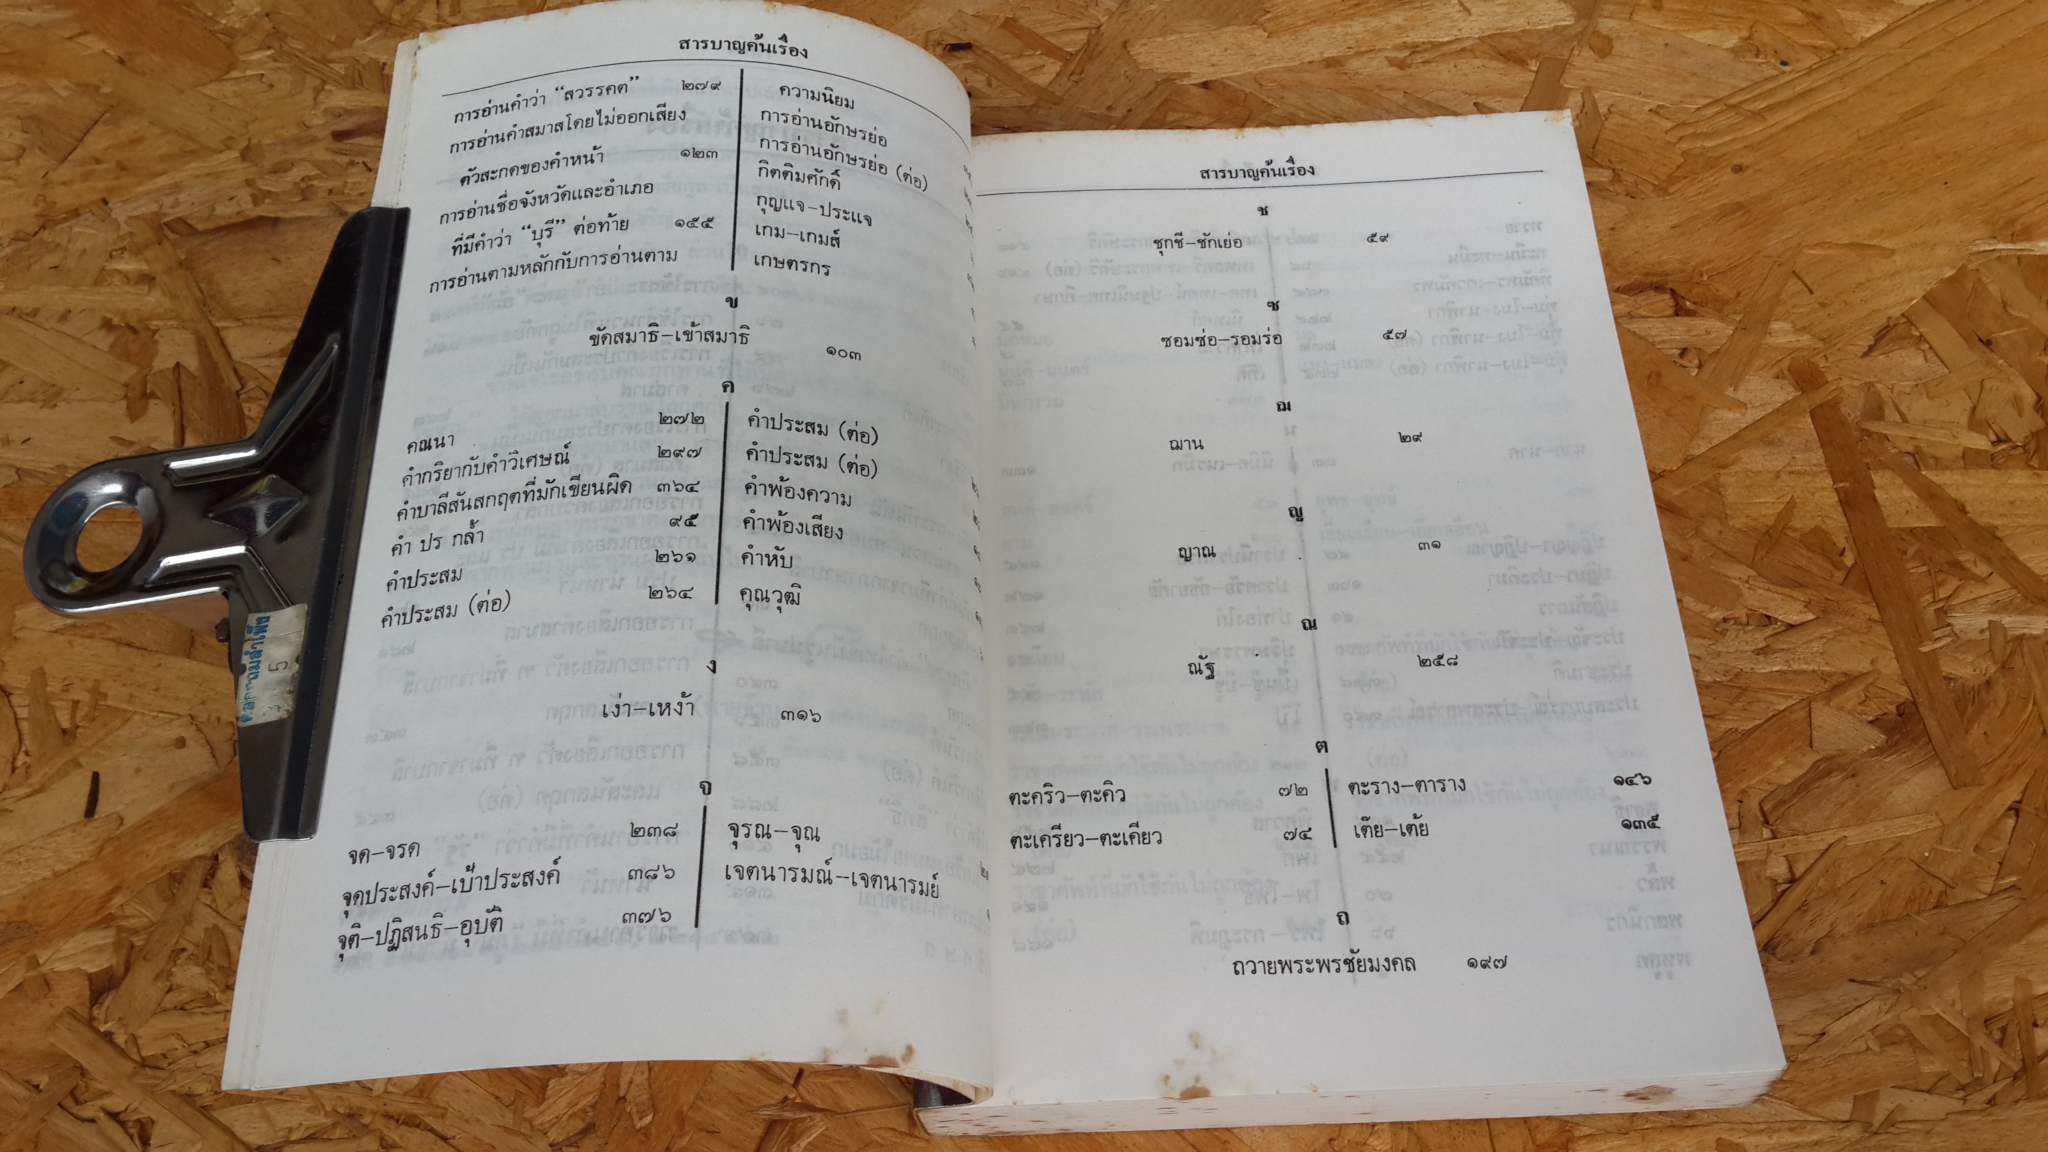 สารบาญค้นเรื่อง
การอ่านคำว่า “สวรรคต” ๒๗๙
การอ่านคำสมาสโดยไม่ออกเสียง
ตัวสะกดของคำหน้า ๑๒๓
การอ่านชื่อจังหวัดและอำเภอ
ที่มีคำว่า “บุรี” ต่อท้าย ๑๕๕
การอ่านตามหลักกับการอ่านตาม
ความนิยม
การอ่านอักษรย่อ
การอ่านอักษรย่อ (ต่อ)
กิตติมศักดิ์
กุญแจ-ประแจ
เกม-เกมส์
เกษตรกร
ข
ขัดสมาธิ-เข้าสมาธิ ๑๐๓
ค
คณนา ๒๗๒
คำกริยากับคำวิเศษณ์ ๒๙๗
คำบาลีสันสกฤตที่มักเขียนผิด ๓๖๔
คำ ปร กล้ำ ๙๕
คำประสม ๒๖๑
คำประสม (ต่อ) ๒๖๔
คำประสม (ต่อ)
คำประสม (ต่อ)
คำพ้องความ
คำพ้องเสียง
คำหับ
คุณวุฒิ
ง
เง่า-เหง้า ๓๑๖
จ
จด-จรด ๒๓๘
จุดประสงค์-เป้าประสงค์ ๓๘๖
จุติ-ปฏิสนธิ-อุบัติ ๓๗๖
จุรณ-จุณ
เจตนารมณ์-เจตนารมย์
สารบาญค้นเรื่อง
ช
ชุกชี-ชักเย่อ ๕๙
ซ
ซอมซ่อ-รอมร่อ ๕๗
ฌ
ฌาน ๒๙
ญ
ญาณ ๓๑
ณ
ณัฐ ๒๕๘
ต
ตะคริว-ตะคิว ๗๒
ตะเครียว-ตะเคียว ๗๔
ตะราง-ตาราง ๑๔๖
เต๊ย-เต้ย ๑๓๕
ถ
ถวายพระพรชัยมงคล ๑๙๗